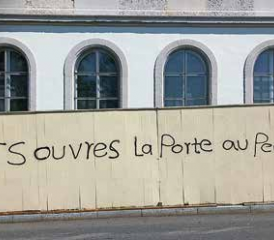 TS ouvres La Porte au Pe